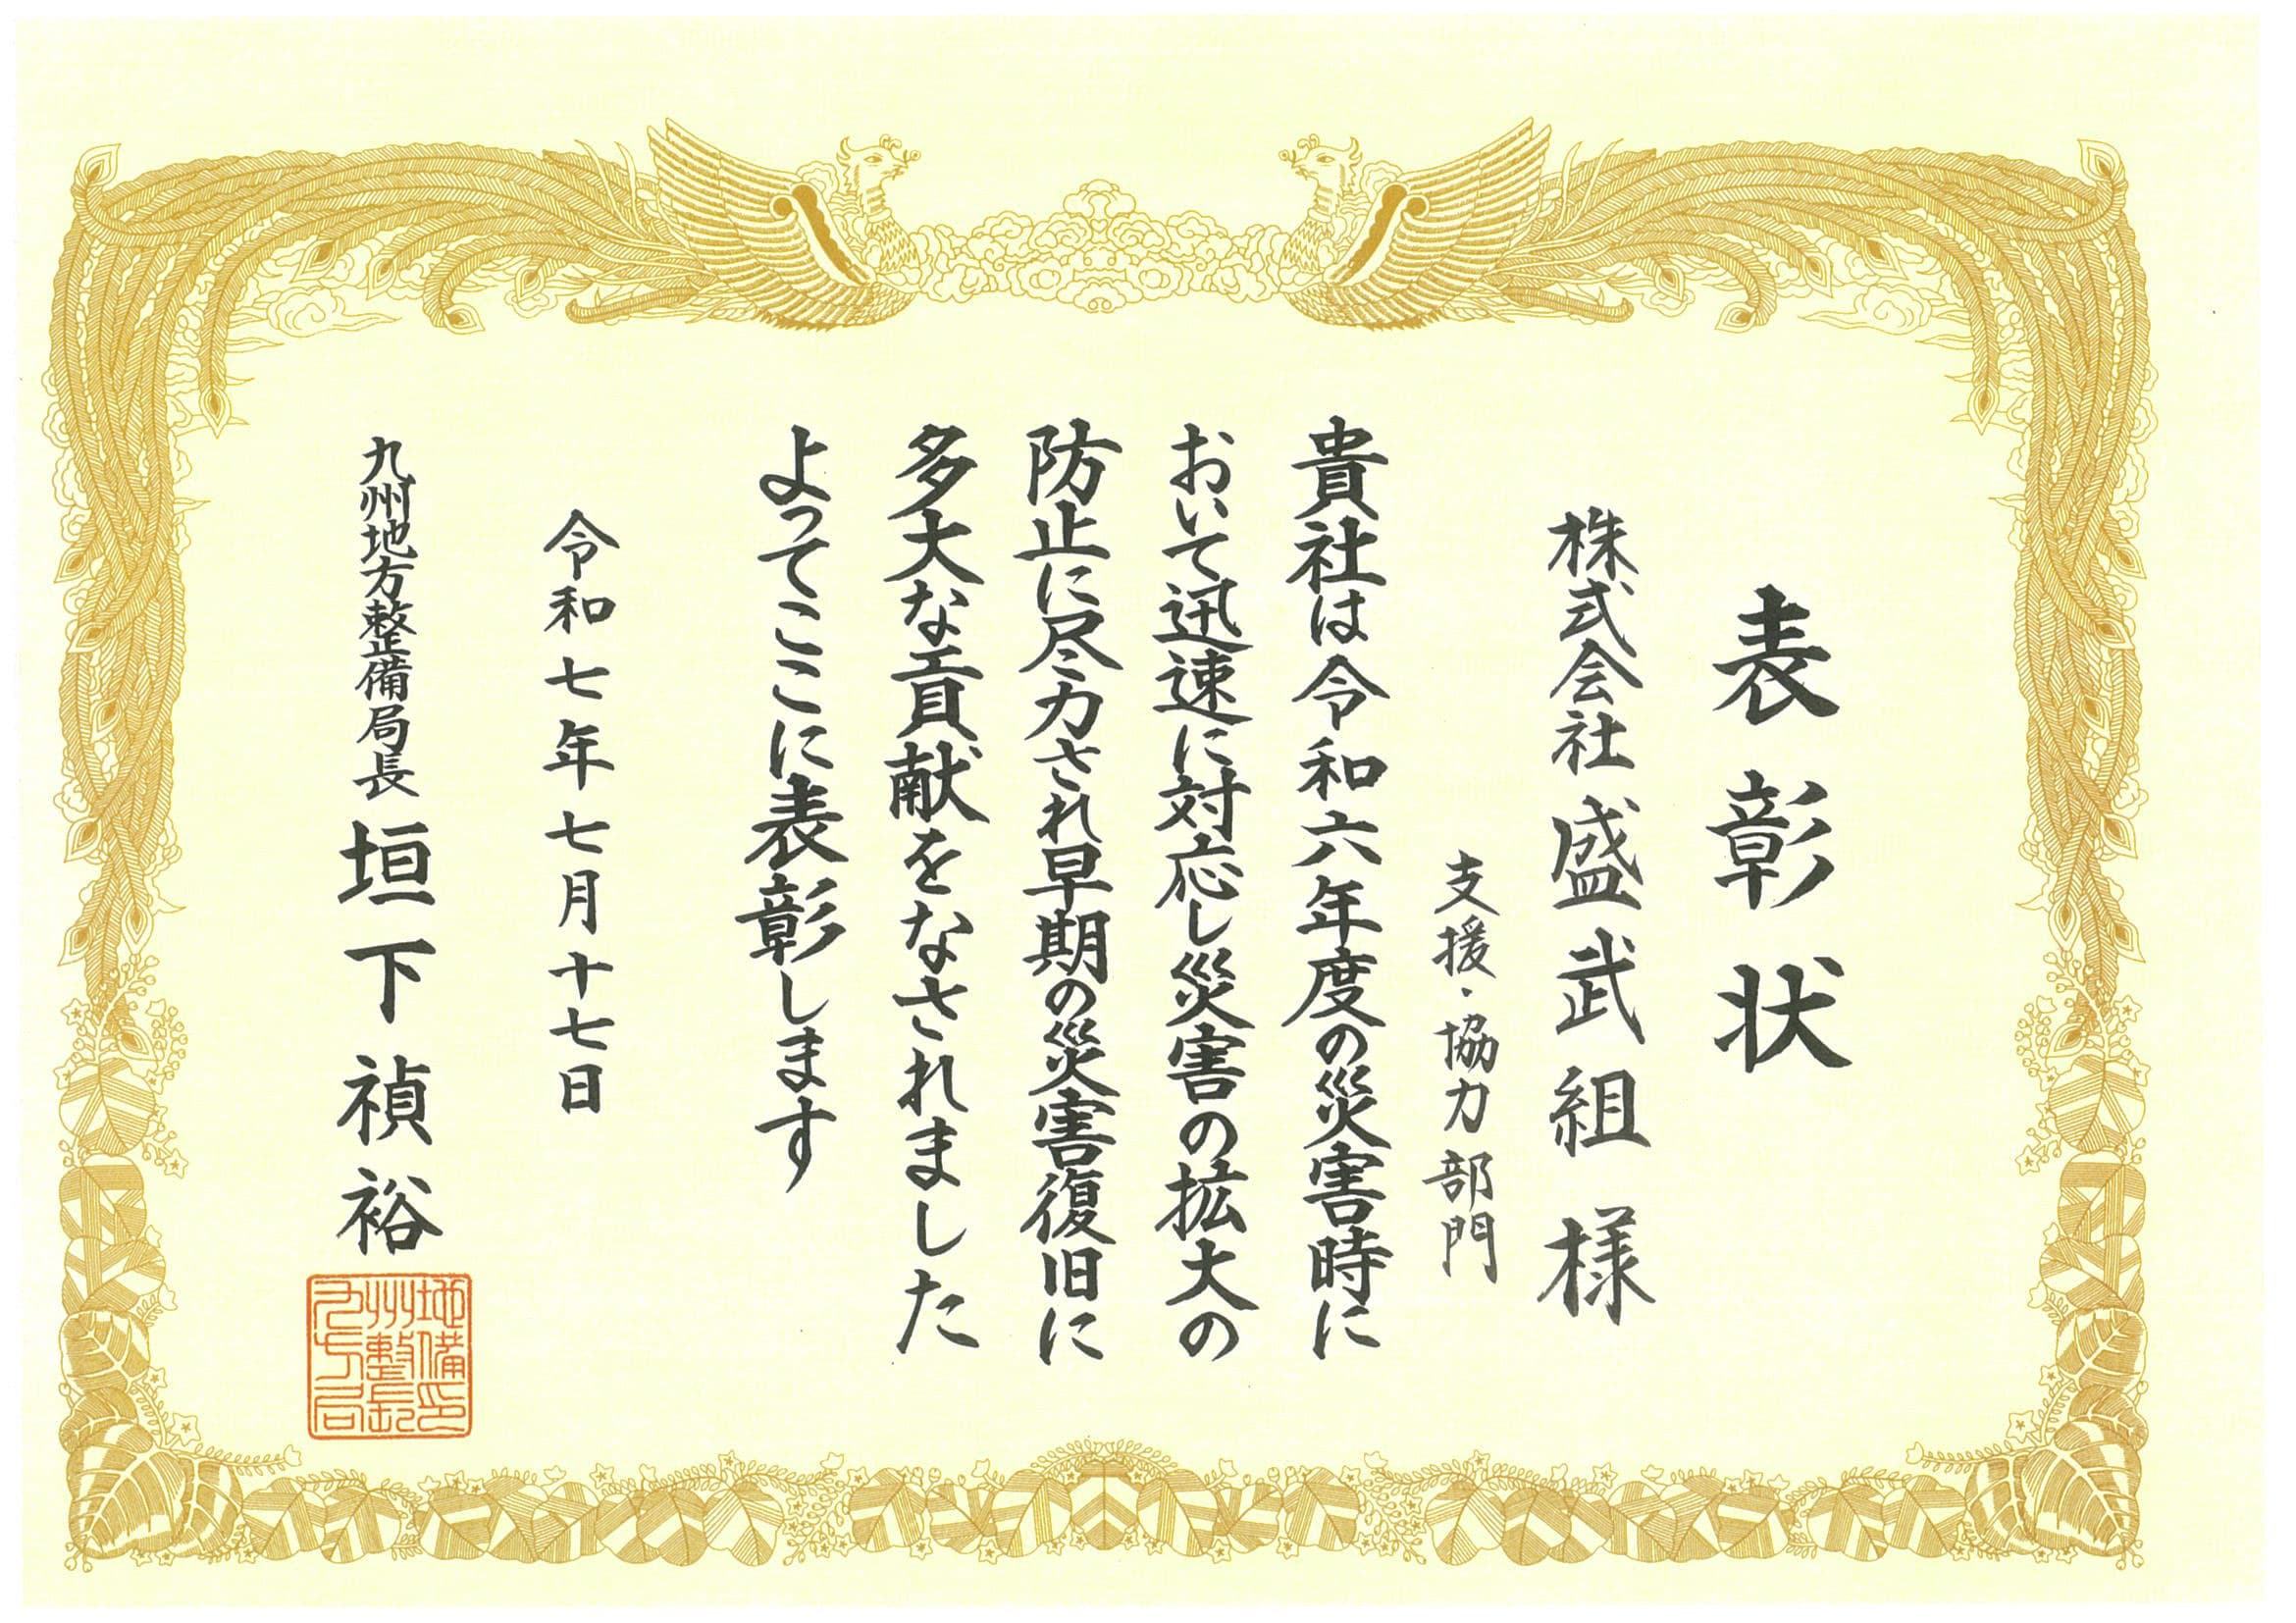 表彰状
株式会社 盛武組 様
支援・協力部門
貴社は令和六年度の災害時に
おいて迅速に対応し災害の拡大の
防止に尽力され早期の災害復旧に
多大な貢献をなされました
よってここに表彰します
令和七年七月十七日
九州地方整備局長 垣下禎裕
地備印
州整長
九方局